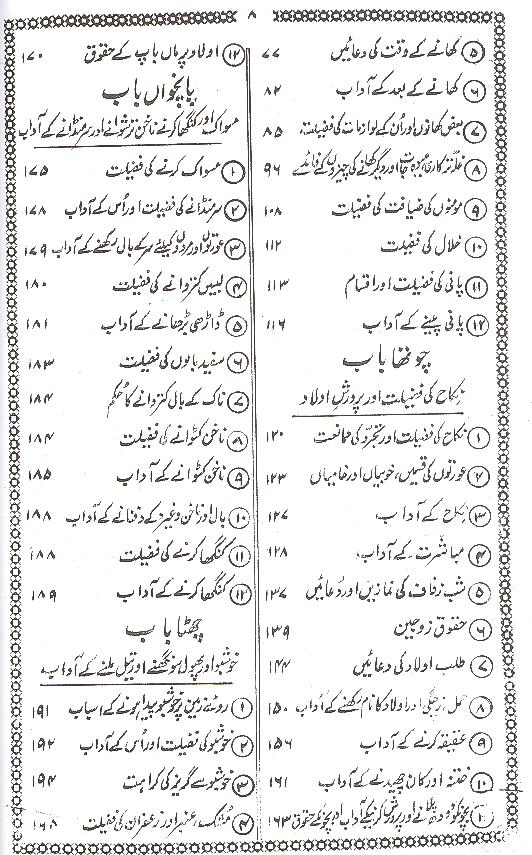 ۸
۵ کھانے کے وقت کی دعائیں ۷۷
۶ کھانے کے بعد کے آداب ۸۲
۷ بعض کھانوں اور اُن کے لوازمات کی فضیلت ۸۵
۸ غلّہ ترکاری میوہ جات اور دیگر کھانے کی چیزوں کے فائدے ۹۶
۹ مومنوں کی ضیافت کی فضیلت ۱۰۸
۱۰ خلال کی فضیلت ۱۱۲
۱۱ پانی کی فضیلت اور اقسام ۱۱۳
۱۲ پانی پینے کے آداب ۱۱۶
چوتھا باب
نکاح کی فضیلت اور پرورشِ اولاد
۱ نکاح کی فضیلت اور تجرّد کی ممانعت ۱۲۰
۲ عورتوں کی قسمیں، خوبیاں اور خامیاں ۱۲۳
۳ نکاح کے آداب ۱۲۷
۴ مباشرت کے آداب ۱۲۸
۵ شب زفاف کی نمازیں اور دُعائیں ۱۳۷
۶ حقوق زوجین ۱۳۹
۷ طلب اولاد کی دعائیں ۱۴۴
۸ حمل زچگی اور اولاد کا نام رکھنے کے آداب ۱۵۰
۹ عقیقہ کرنے کے آداب ۱۵۶
۱۰ ختنہ اور کان چھیدنے کے آداب ۱۶۱
۱۱ بچّوں کو دودھ پلانے اور پرورش کرنیکے آداب اور بچّوں کے حقوق ۱۶۳
۱۲ اولاد پر ماں باپ کے حقوق ۱۷۰
پانچواں باب
مسواک اور کنگھا کرنے ناخن ترشوانے اور سر منڈانے کے آداب
۱ مسواک کرنے کی فضیلت ۱۷۵
۲ سر منڈانے کی فضیلت اور اُس کے آداب ۱۷۸
۳ عورتوں اور مردوں کیلئے سر کے بال رکھنے کے آداب ۱۷۹
۴ لبیں کتروانے کی فضیلت ۱۸۰
۵ داڑھی بڑھانے کے آداب ۱۸۱
۶ سفید بالوں کی فضیلت ۱۸۳
۷ ناک کے بال کتروانے کا حُکم ۱۸۴
۸ ناخن کٹوانے کی فضیلت ۱۸۴
۹ ناخن کٹوانے کے آداب ۱۸۵
۱۰ بال اور ناخن وغیرہ کے دفنانے کے آداب ۱۸۸
۱۱ کنگھا کرنے کی فضیلت ۱۸۸
۱۲ کنگھا کرنے کے آداب ۱۸۹
چھٹا باب
خوشبو اور پھول سونگھنے اور تیل ملنے کے آداب
۱ روئے زمین پر خوشبو پیدا ہونے کے اسباب ۱۹۱
۲ خوشبو کی فضیلت اور اُس کے آداب ۱۹۲
۳ خوشبو سے گریز کی کراہت ۱۹۴
۴ مُشک، عنبر اور زعفران کی فضیلت ۱۶۸